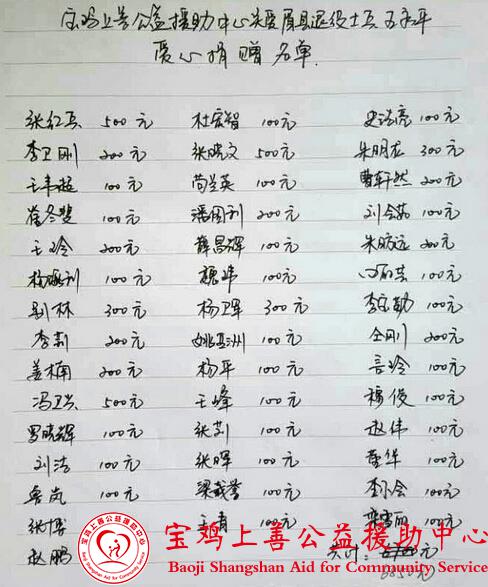 宝鸡上善公益援助中心关爱眉县退役士兵王永平
爱心捐赠名单
张红兵 500元 杜宏智 100元 史浩亮 100元
李卫刚 200元 张晓文 500元 朱明龙 300元
100元 苟兰英 100元 曹轩然 200元
崔冬斐 100元 潘周利 200元 刘会茹 100元
王玲 200元 薛昌辉 100元 朱昉远 200元
杨鹏利 100元 魏炜 100元 100元
尉林 300元 杨卫军 300元 李宝勤 100元
李莉 200元 姚亚洲 100元 仝刚 200元
姜楠 200元 杨平 100元 100元
冯卫兴 500元 王峰 100元 穆俊 100元
罗晓辉 100元 张莉 100元 赵伟 100元
刘洁 100元 张晖 100元 100元
鲁岚 100元 梁薇誉 100元 李小会 100元
张博 王青 100元
赵鹏 共计: 元
宝鸡上善公益援助中心
Baoji Shangshan Aid for Community Service